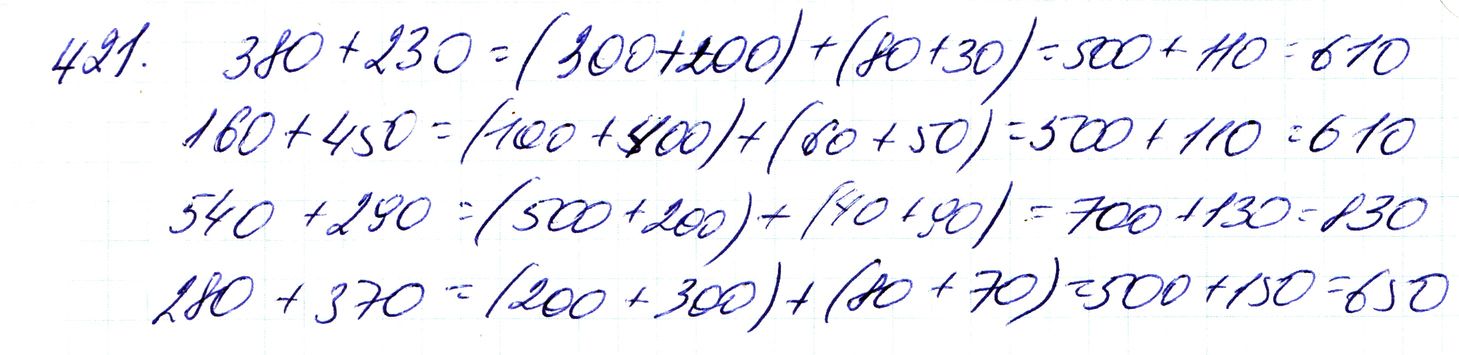 421. 380 + 230 = (300 + 200) + (80 + 30) = 500 + 110 = 610
160 + 450 = (100 + 400) + (60 + 50) = 500 + 110 = 610
540 + 290 = (500 + 200) + (40 + 90) = 700 + 130 = 830
280 + 370 = (200 + 300) + (80 + 70) = 500 + 150 = 650